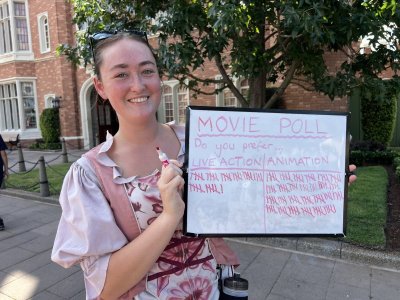 MOVIE POLL
Do you prefer...
LIVE ACTION ANIMATION